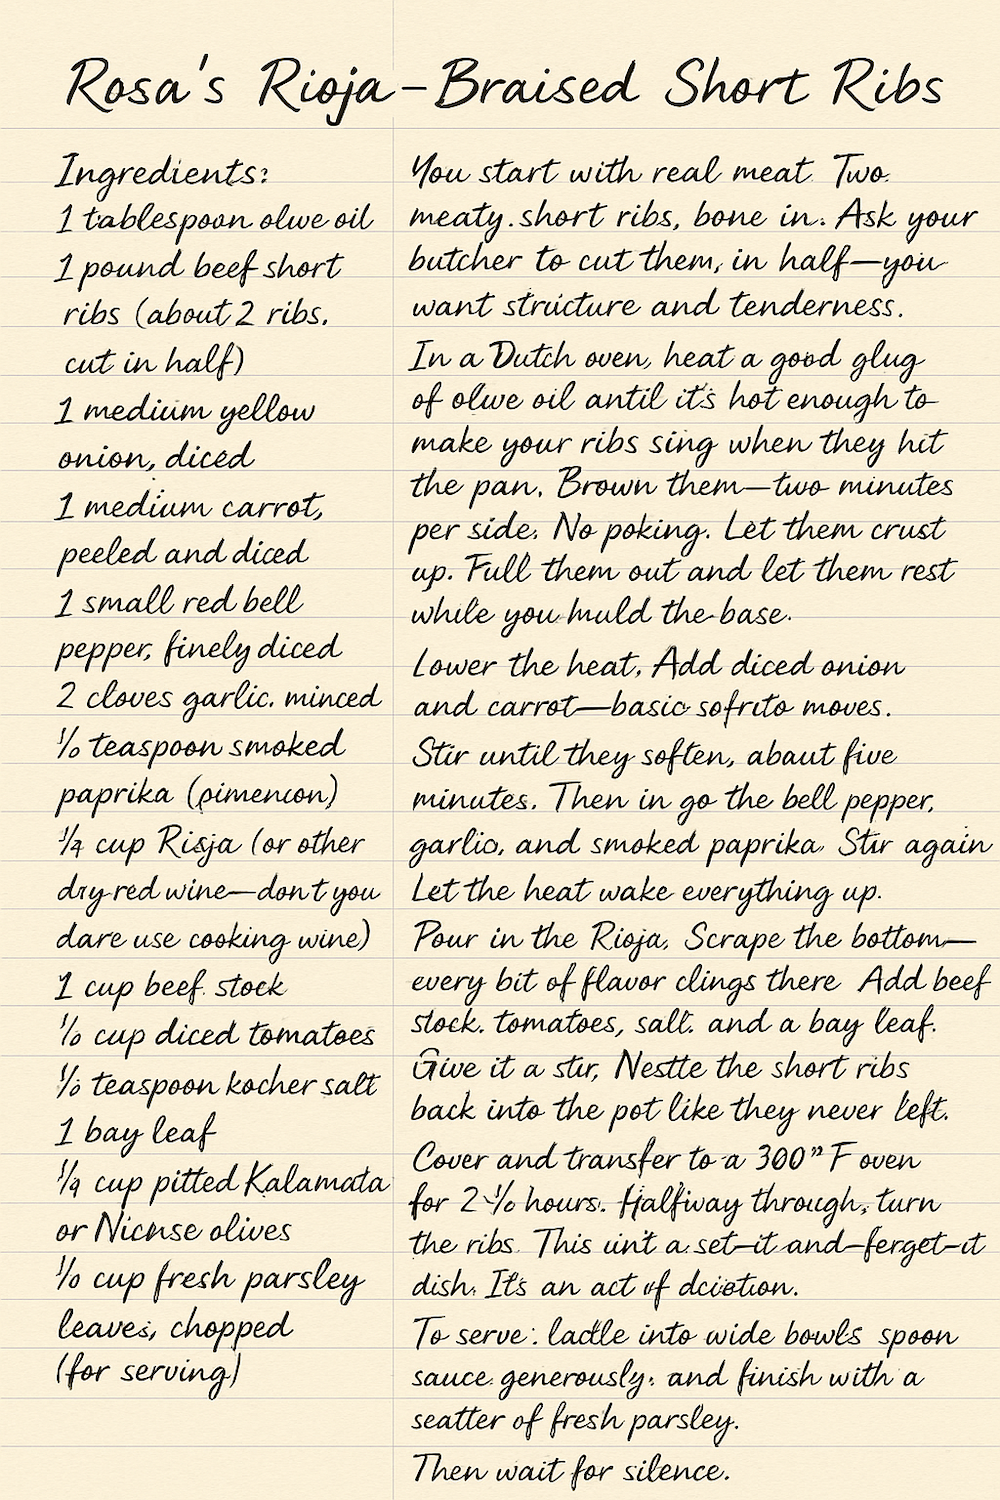 Rosa's Rioja–Braised Short Ribs
Ingredients:
1 tablespoon olwe oil
1 pound beef short
ribs (about 2 ribs.
cut in half)
1 medium yellow
onion, diced
1 medium carrot,
peeled and diced
1 small red bell
pepper, finely diced
2 cloves garlic. minced
teaspoon smoked
paprika (pimencon)
cup Risja (or other
dry-red wine—don't you
dare use cooking wine)
1 cup beef. stock
cup diced tomatoes
teaspoon kocher salt
1 bay leaf
cup pitted Kalamata
or Nicnse olives
cup fresh parsley
leaves, chopped
(for serving)
You start with real meat. Two.
meaty.short ribs, bone in. Ask your
butcher to cut them, in half—you
want structure and tenderness.
In a Dutch oven, heat a good glug
of olwe oil antil it's hot enough to
make your ribs sing when they hit
the pan. Brown them—two minutes
per side. No poking. Let them crust
up. Full them out and let them rest
while you muld the base.
Lower the heat, Add diced onion
and carrot—basic sofrito moves.
Stir until they soften, abaut five
minutes. Then in go the bell pepper,
garlic, and smoked paprika Stir again
Let the heat wake everything up.
Pour in the Rioja, Scrape the bottom—
every bit of flavor clings there Add beef
stock. tomatoes, salt. and a bay leaf.
Give it a stir, Nestle the short ribs
back into the pot like they never left.
Cover and transfer to a 300" F oven
for 2 hours. Halfway through, turn
the ribs. This uin't a set–it and–ferget–it
dish. It's an act of
To serve: ladle into wide bowls spoon
sauce generously, and finish with a
seatter of fresh parsley.
Then wait for silence.